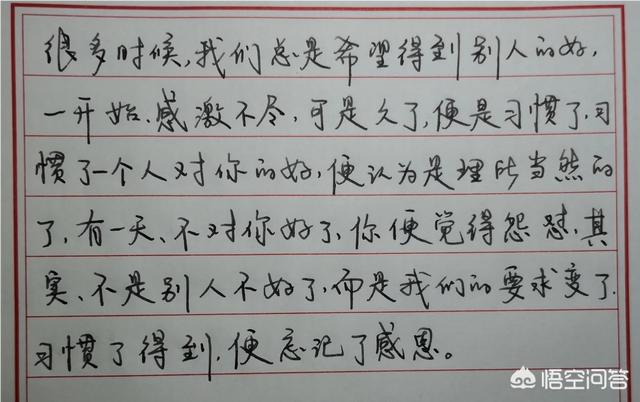 很多时候,我们总是希望得到别人的好,
一开始、感激不尽,可是久了,便是习惯了,习
惯了一个人对你的好,便认为是理所当然的
了,有一天、不对你好了、你便觉得怨怼,其
实、不是别人不好了,而是我们的要求变了.
习惯了得到,便忘记了感恩。
悟空问答